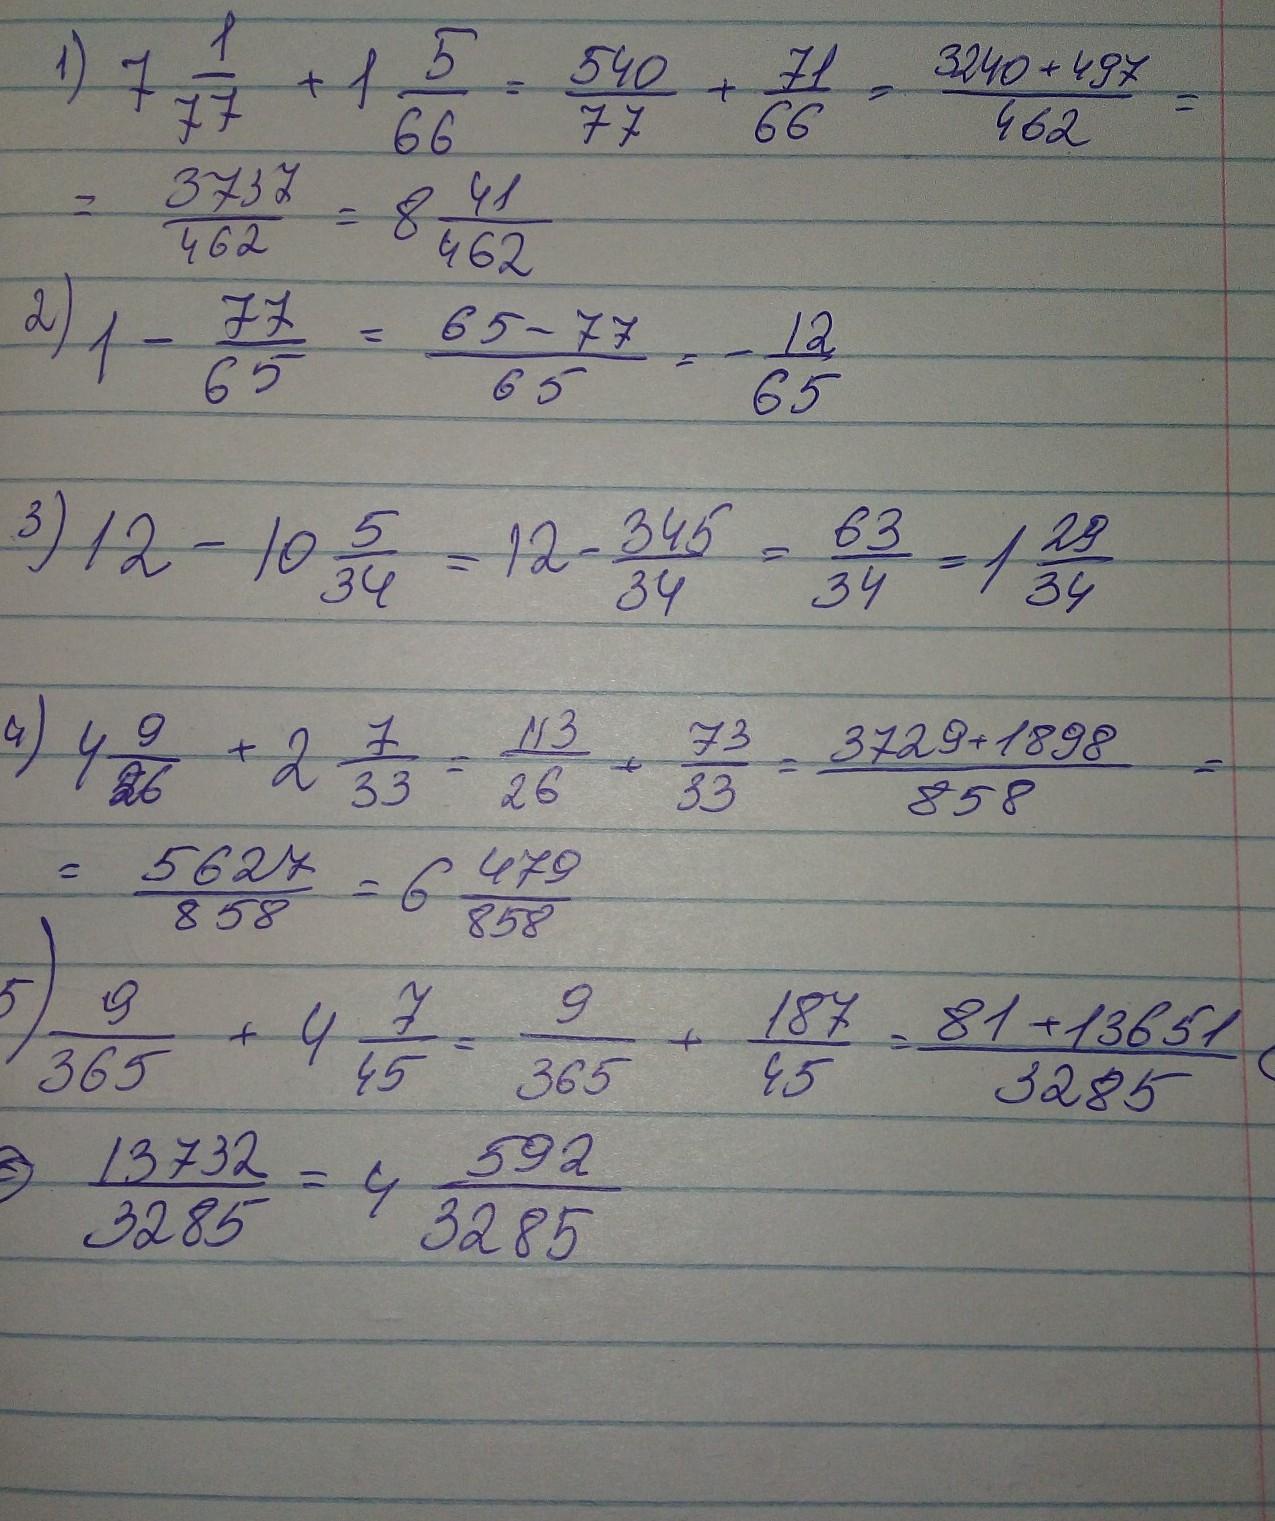 1) 7 1/77 + 1 5/66 = 540/77 + 71/66 = (3240+497)/462 =
= 3737/462 = 8 41/462
2) 1 - 77/65 = (65-77)/65 = - 12/65
3) 12 - 10 5/34 = 12 - 345/34 = 63/34 = 1 29/34
4) 4 9/26 + 2 7/33 = 113/26 + 73/33 = (3729+1898)/858 =
= 5627/858 = 6 479/858
5) 9/365 + 4 7/45 = 9/365 + 187/45 = (81+13651)/3285 =
= 13732/3285 = 4 592/3285